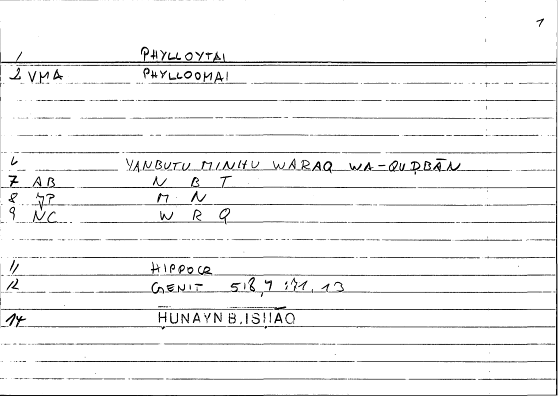 1
1 PHYLLOYTAI
2 VMA PHYLLOOMAI
6 YANBUTU MINHU WARAQ WA-QUḌBĀN
7 AB N B T
8 YP M N
9 NC W R Q
11 HIPPOCR
12 GENIT 58,7
14 ḤUNAYN B. ISḤĀQ